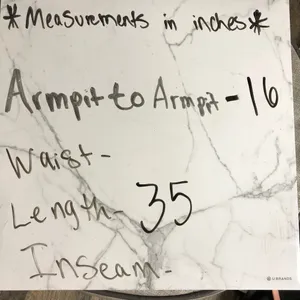 *Measurements in inches*
Armpit to Armpit - 16
Waist -
Length - 35
Inseam -
U BRANDS